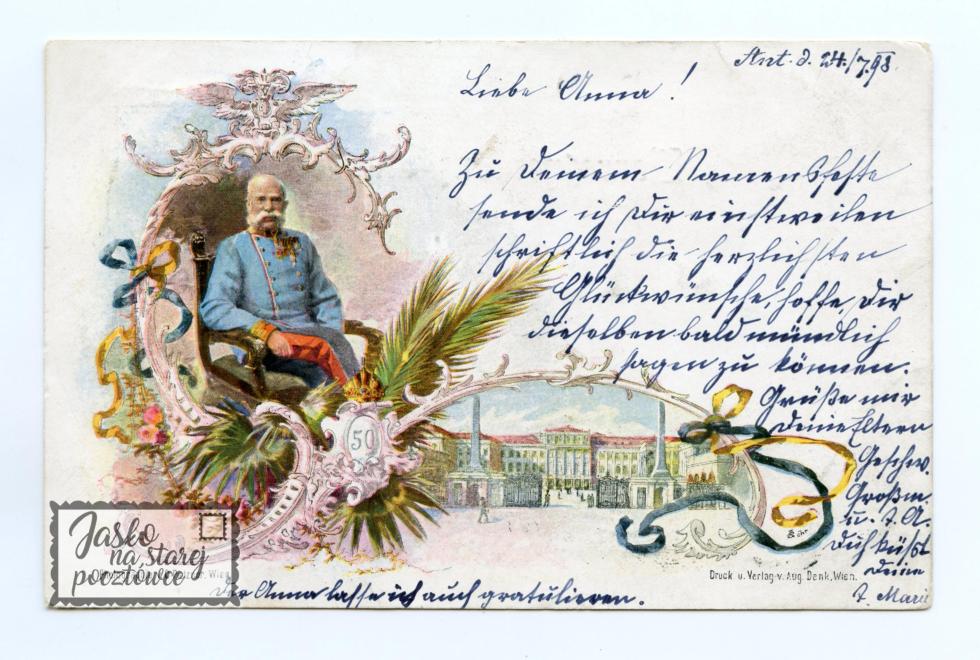 Ant. d. 24./7.98.
Liebe Anna!
Zu Deinem Namensfeste
sende ich Dir einstweilen
schriftlich die herzlichsten
Glückwünsche, hoffe, Dir
dieselben bald mündlich
sagen zu können.
Grüße mir
Deine Eltern
Geschw.
Großm.
u. T. A.
Dich küßt
Deine
T. Marie
Der Anna lasse ich auch gratulieren.
50
Druck u. Verlag v. Aug. Denk, Wien.
Wien
Jaśko
na starej
pocztówce